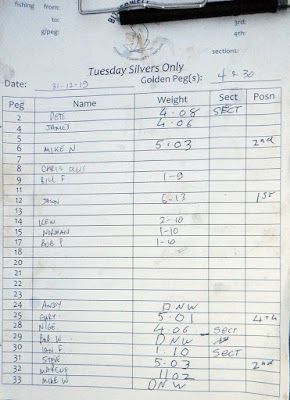 fishing from:
to:
g/peg:
3rd:
4th:
sections:
Tuesday Silvers Only
Date: 31-12-19 Golden Peg(s): 4 & 30
Peg Name Weight Sect Posn
2 PETE 4.08 SECT
4 JAMES 4.06
5
6 MIKE N 5.03 2nd
7
8 CHRIS
9 BILL F 1-9
11
12 JOHN 6-13 1st
13
14 KEN 2-10
15 NORMAN 1-10
17 BOB P 1-10
18
20
21
22
23
24 ANDY DNW
25 GARY 5.01 4th
28 NIGE 4.06 SECT
29 BOB W DNW
30 IAN F 1.10 SECT
31 STEVE 5.03 2nd
32 MARCUS 1102
33 MIKE W DNW